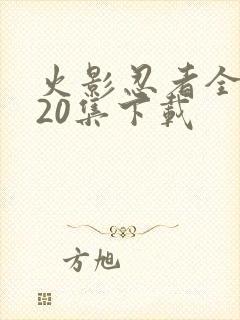 火影忍者全
20集下載
方旭